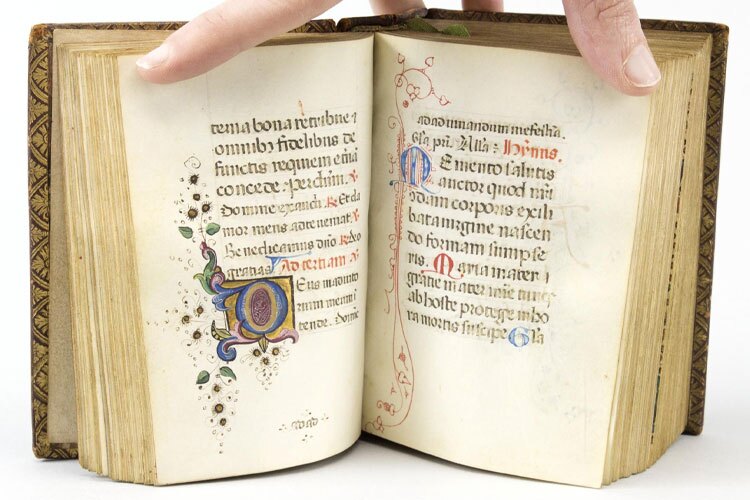 terna bona retribue ⁊
omnibȝ fidelibus de
functis requiem etnā
concede. Per dnm̄. ℣.
Domine exaudi. ℟. Et cla
mor meus ad te veniat. ℣.
Benedicamus dn̄o. ℟. Deo
gratias. Ad tertiam. ℣.
Deus in adiuto
rium meum i
tende. Domīe
ad adiuuandum me festīa.
Gl'a pr̄i. All'a. Hymnus.
Memento salutis
auctor quod nr̄i
q̄dam corporis ex illi
bata uirgine nascen
do formam sumpse
ris. Maria mater
gratie mater mīe tu nos
ab hoste protege in ho
ra mortis suscipe. Gl'a